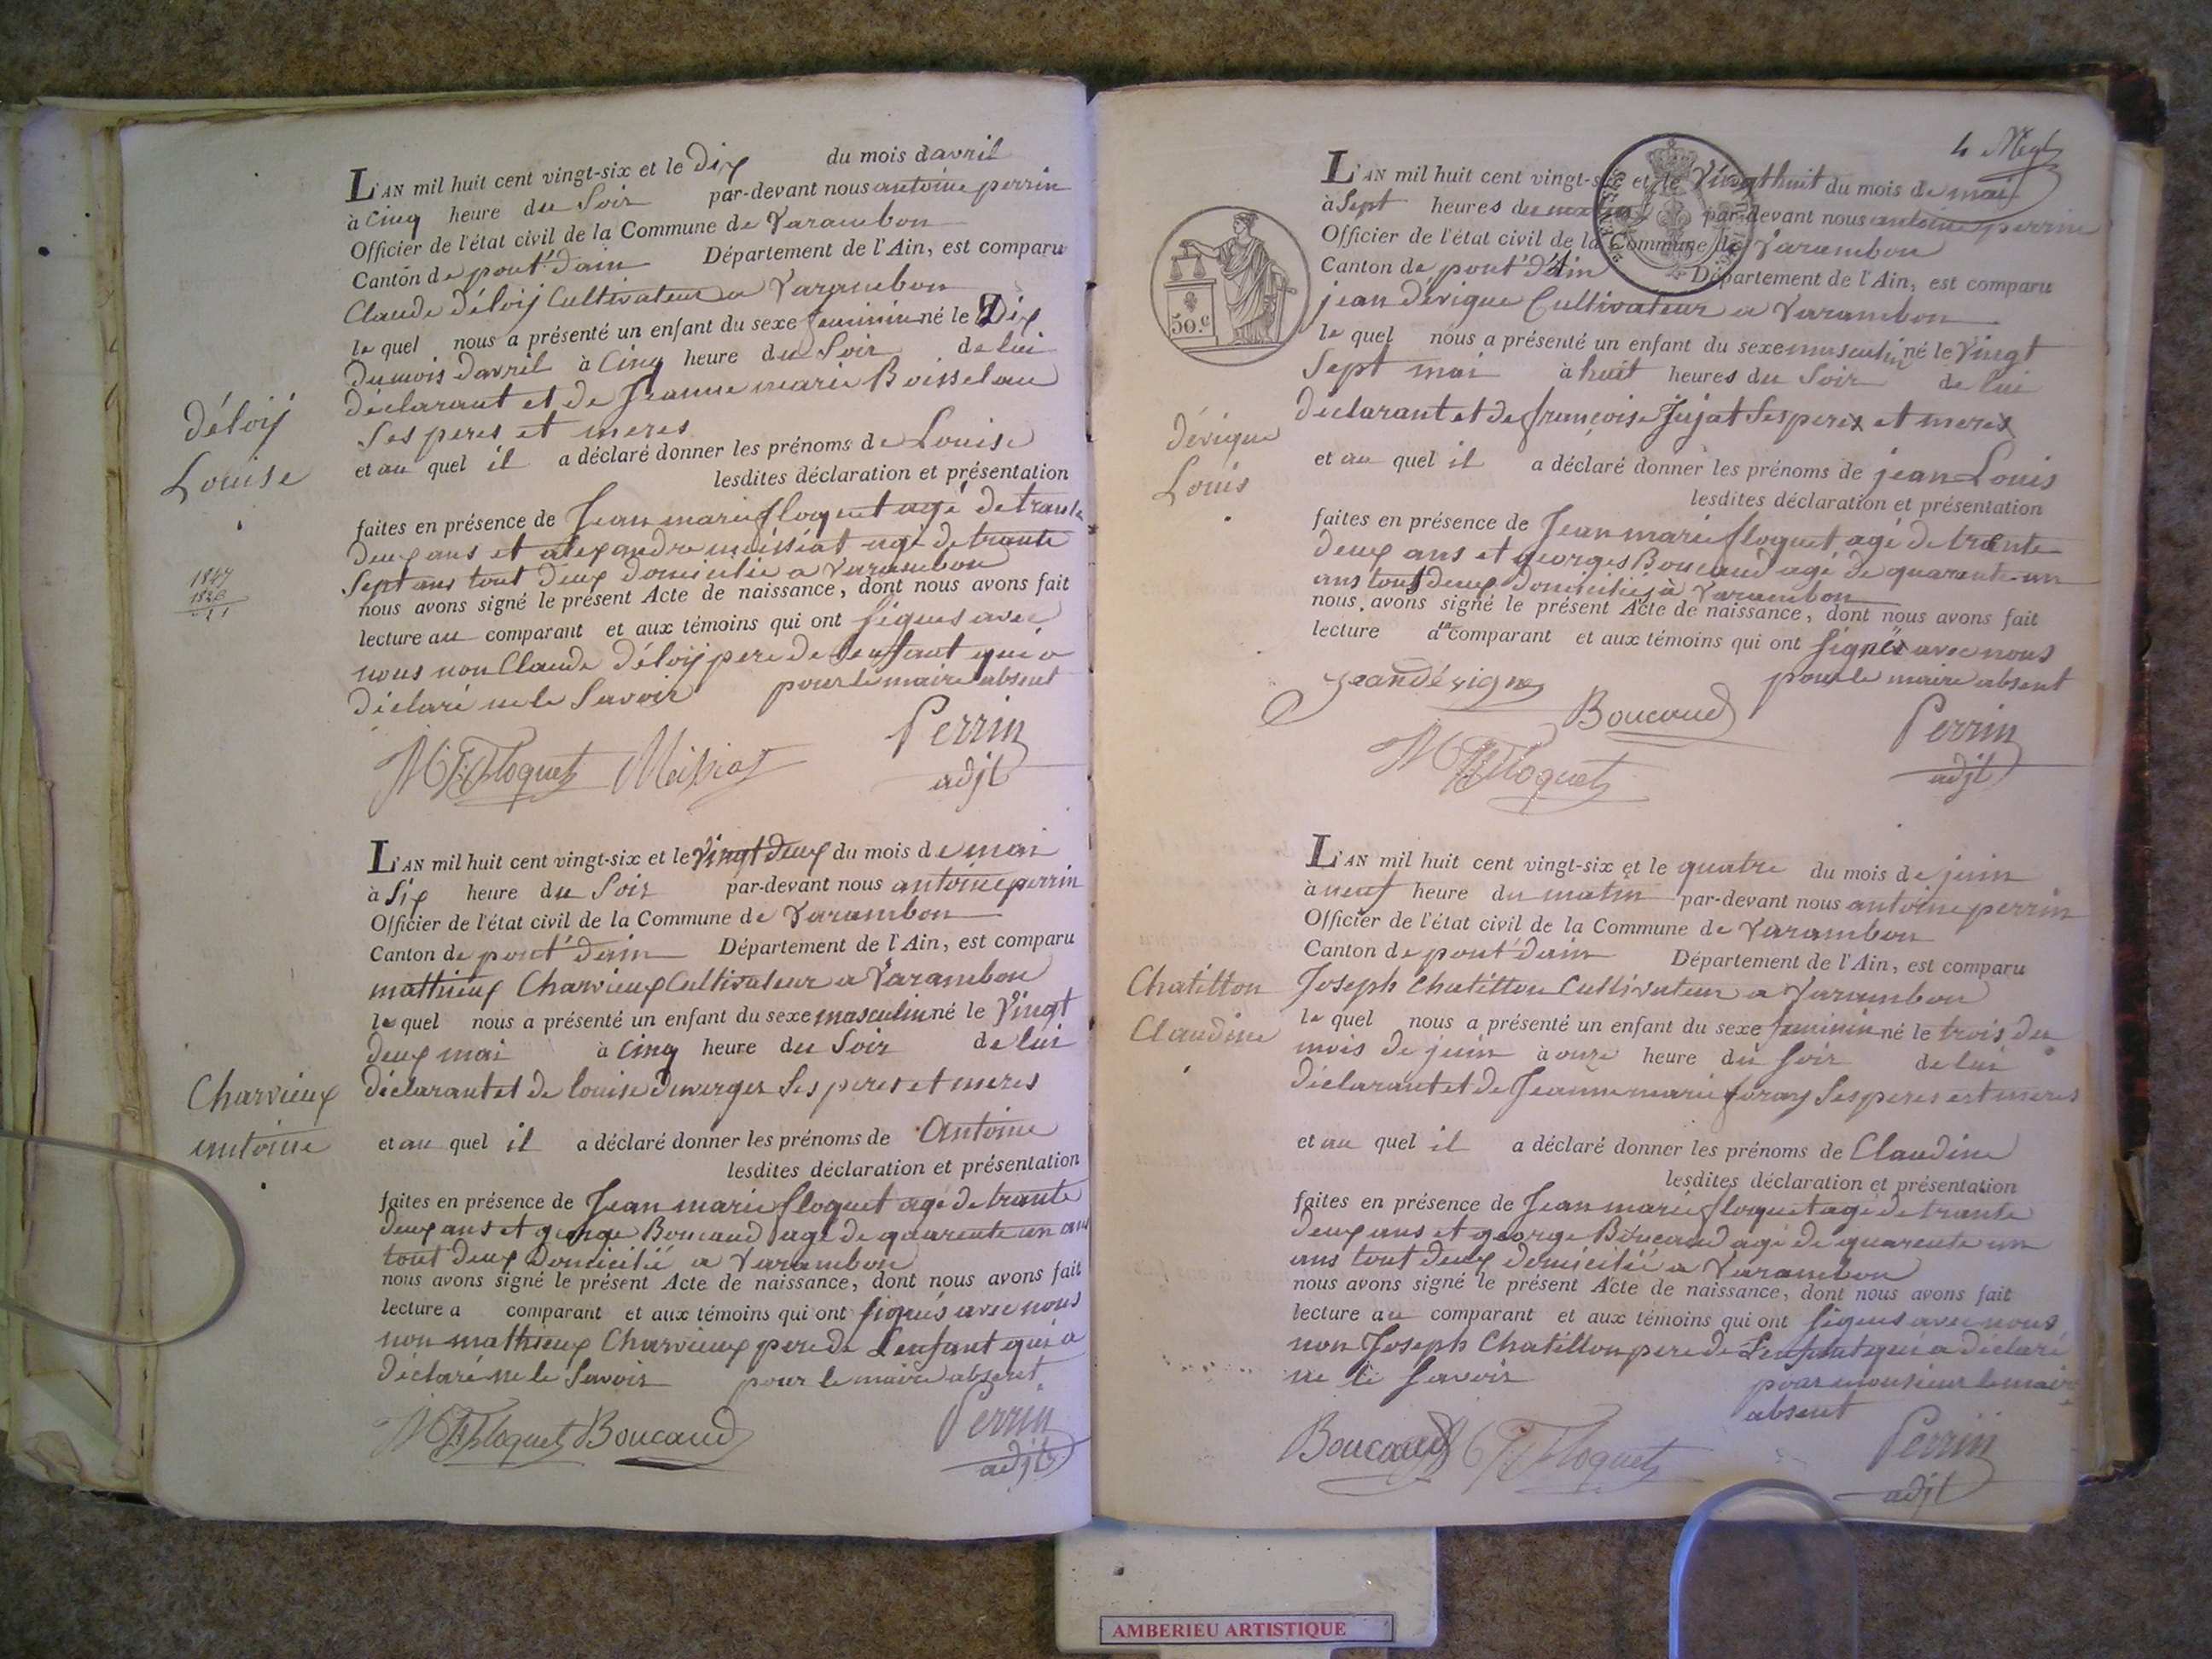 L'AN mil huit cent vingt-six et le Dix du mois davril
à Cinq heure du Soir par-devant nous antoine perrin
Officier de l'état civil de la Commune de Varambon
Canton de pont'dain Département de l'Ain, est comparu
Claude déloij Cultivateur a Varambon
le quel nous a présenté un enfant du sexe feminin né le Dix
du mois davril à Cinq heure du Soir de lui
déclarant et de Jeanne marie Boisselau
Ses peres et meres
et au quel il a déclaré donner les prénoms de Louise
lesdites déclaration et présentation
faites en présence de Jean marie floquet agé de trante
deux ans et alexandre maissiat agé de trante
Sept ans tout deux domicilié a Varambon
nous avons signé le présent Acte de naissance, dont nous avons fait
lecture au comparant et aux témoins qui ont signés avec
nous non Claude déloij pere de lenfant qui a
déclaré ne le Savoir pour le maire absent
Perrin
adjt
Floquet Maissiat
déloij
Louise
1847
L'AN mil huit cent vingt-six et le vingt deux du mois de mai
à Six heure du Soir par-devant nous antoine perrin
Officier de l'état civil de la Commune de Varambon
Canton de pont'dain Département de l'Ain, est comparu
mathieux Charvieux Cultivateur a Varambon
le quel nous a présenté un enfant du sexe masculin né le Vingt
deux mai à Cinq heure du Soir de lui
déclarant et de louise duverger Ses peres et meres
Charvieux
antoine
et au quel il a déclaré donner les prénoms de Antoine
lesdites déclaration et présentation
faites en présence de Jean marie floquet agé de trante
deux ans et george Boucaud agé de quarente un ans
tout deux domicilié a Varambon
nous avons signé le présent Acte de naissance, dont nous avons fait
lecture a comparant et aux témoins qui ont signés avec nous
non mathieux Charvieux pere de Lenfant qui a
déclaré ne le Savoir pour le maire absent
Floquet Boucaud Perrin
adjt
L'AN mil huit cent vingt-six et le Vingt huit du mois de mai
à Sept heures du matin par-devant nous antoine perrin
Officier de l'état civil de la Commune de Varambon
Canton de pont'd'Ain Département de l'Ain, est comparu
jean dévigue Cultivateur a Varambon
50.c
le quel nous a présenté un enfant du sexe masculin né le Vingt
Sept mai à huit heures du Soir de lui
déclarant et de françoise Jujat Ses peres et meres
dévigue
Louis
et au quel il a déclaré donner les prénoms de jean Louis
lesdites déclaration et présentation
faites en présence de Jean marie floquet agé de trente
deux ans et georges Boucaud agé de quarante-un
ans tous deux domiciliés à Varambon
nous avons signé le présent Acte de naissance, dont nous avons fait
lecture au comparant et aux témoins qui ont signés avec nous
pour le maire absent
Boucaud Perrin
adjt
Floquet
L'AN mil huit cent vingt-six et le quatre du mois de juin
à neuf heure du matin par-devant nous antoine perrin
Officier de l'état civil de la Commune de Varambon
Canton de pont'dain Département de l'Ain, est comparu
Joseph Chatillon Cultivateur a Varambon
le quel nous a présenté un enfant du sexe feminin né le trois du
mois de juin à onze heure du Soir de lui
déclarant et de Jeanne marie foray Ses peres est meres
Chatillon
Claudine
et au quel il a déclaré donner les prénoms de Claudine
lesdites déclaration et présentation
faites en présence de Jean marie floquet agé de trante
deux ans et george Boucaud agé de quarente un
ans tout deux domicilié a Varambon
nous avons signé le présent Acte de naissance, dont nous avons fait
lecture au comparant et aux témoins qui ont signés avec nous
non Joseph Chatillon pere de Lenfant qui a déclaré
ne le Savoir pour monsieur le maire
absent
Boucaud Floquet Perrin
adjt
AMBERIEU ARTISTIQUE